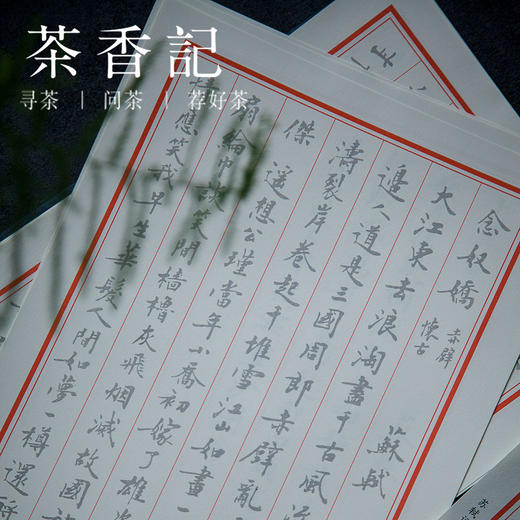 茶香記
寻茶 | 问茶 | 荐好茶
念奴嬌 赤壁懷古 蘇軾
大江東去浪淘盡千古風流
邊人道是三國周郎赤壁亂
濤裂岸卷起千堆雪江山如畫一
傑遙想公瑾當年小喬初嫁了雄姿
扇綸巾談笑間檣櫓灰飛烟滅故國
應笑我早生華髮人間如夢一樽還酹
苏轼